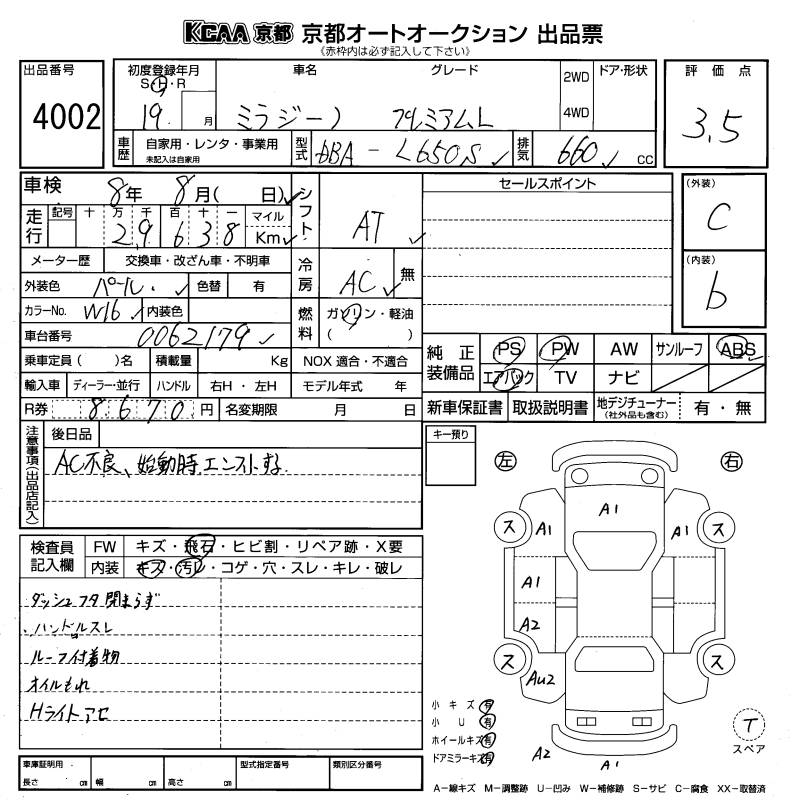 KCAA 京都 京都オートオークション 出品票
《赤枠内は必ず記入して下さい》
出品番号 4002
初度登録年月 S・H・R 19. 月
車名 ミラジーノ
グレード プレミアムL
2WD 4WD
ドア・形状
評価点 3.5
車歴 自家用・レンタ・事業用 未記入は自家用
型式 DBA-L650S
排気 660 cc
車検 8年 8月( 日)
シフト AT
セールスポイント
(外装) C
走行 記号 十万千百十一 29638 マイル Km
メーター歴 交換車・改ざん車・不明車
冷房 AC 無
(内装) b
外装色 パール. 色替 有
カラーNo. W16 内装色
燃料 ガソリン・軽油 ( )
車台番号 0062179
純正装備品 PS PW AW サンルーフ ABS
エアバック TV ナビ
乗車定員( )名 積載量 Kg NOX 適合・不適合
輸入車 ディーラー・並行 ハンドル 右H・左H モデル年式 年
R券 8670円 名変期限 月 日
新車保証書 取扱説明書 地デジチューナー (社外品も含む) 有・無
注意事項(出品店記入) 後日品
AC不良、始動時エンストする.
キー預り
左 右
検査員記入欄 FW キズ・飛石・ヒビ割・リペア跡・X要
内装 キズ・汚レ・コゲ・穴・スレ・キレ・破レ
ダッシュフタ閉まらず
ハンドルスレ
ルーフ付着物
オイルもれ
Hライトアセ
A1
ス A1 A1 ス
A1
A2
ス Au2 ス
小キズ 有
小U 有
ホイールキズ 有
ドアミラーキズ 有
A2 A1
T スペア
車庫証明用. 長さ cm 幅 cm 高さ cm 型式指定番号 類別区分番号
A-線キズ M-調整跡 U-凹み W-補修跡 S-サビ C-腐食 XX-取替済